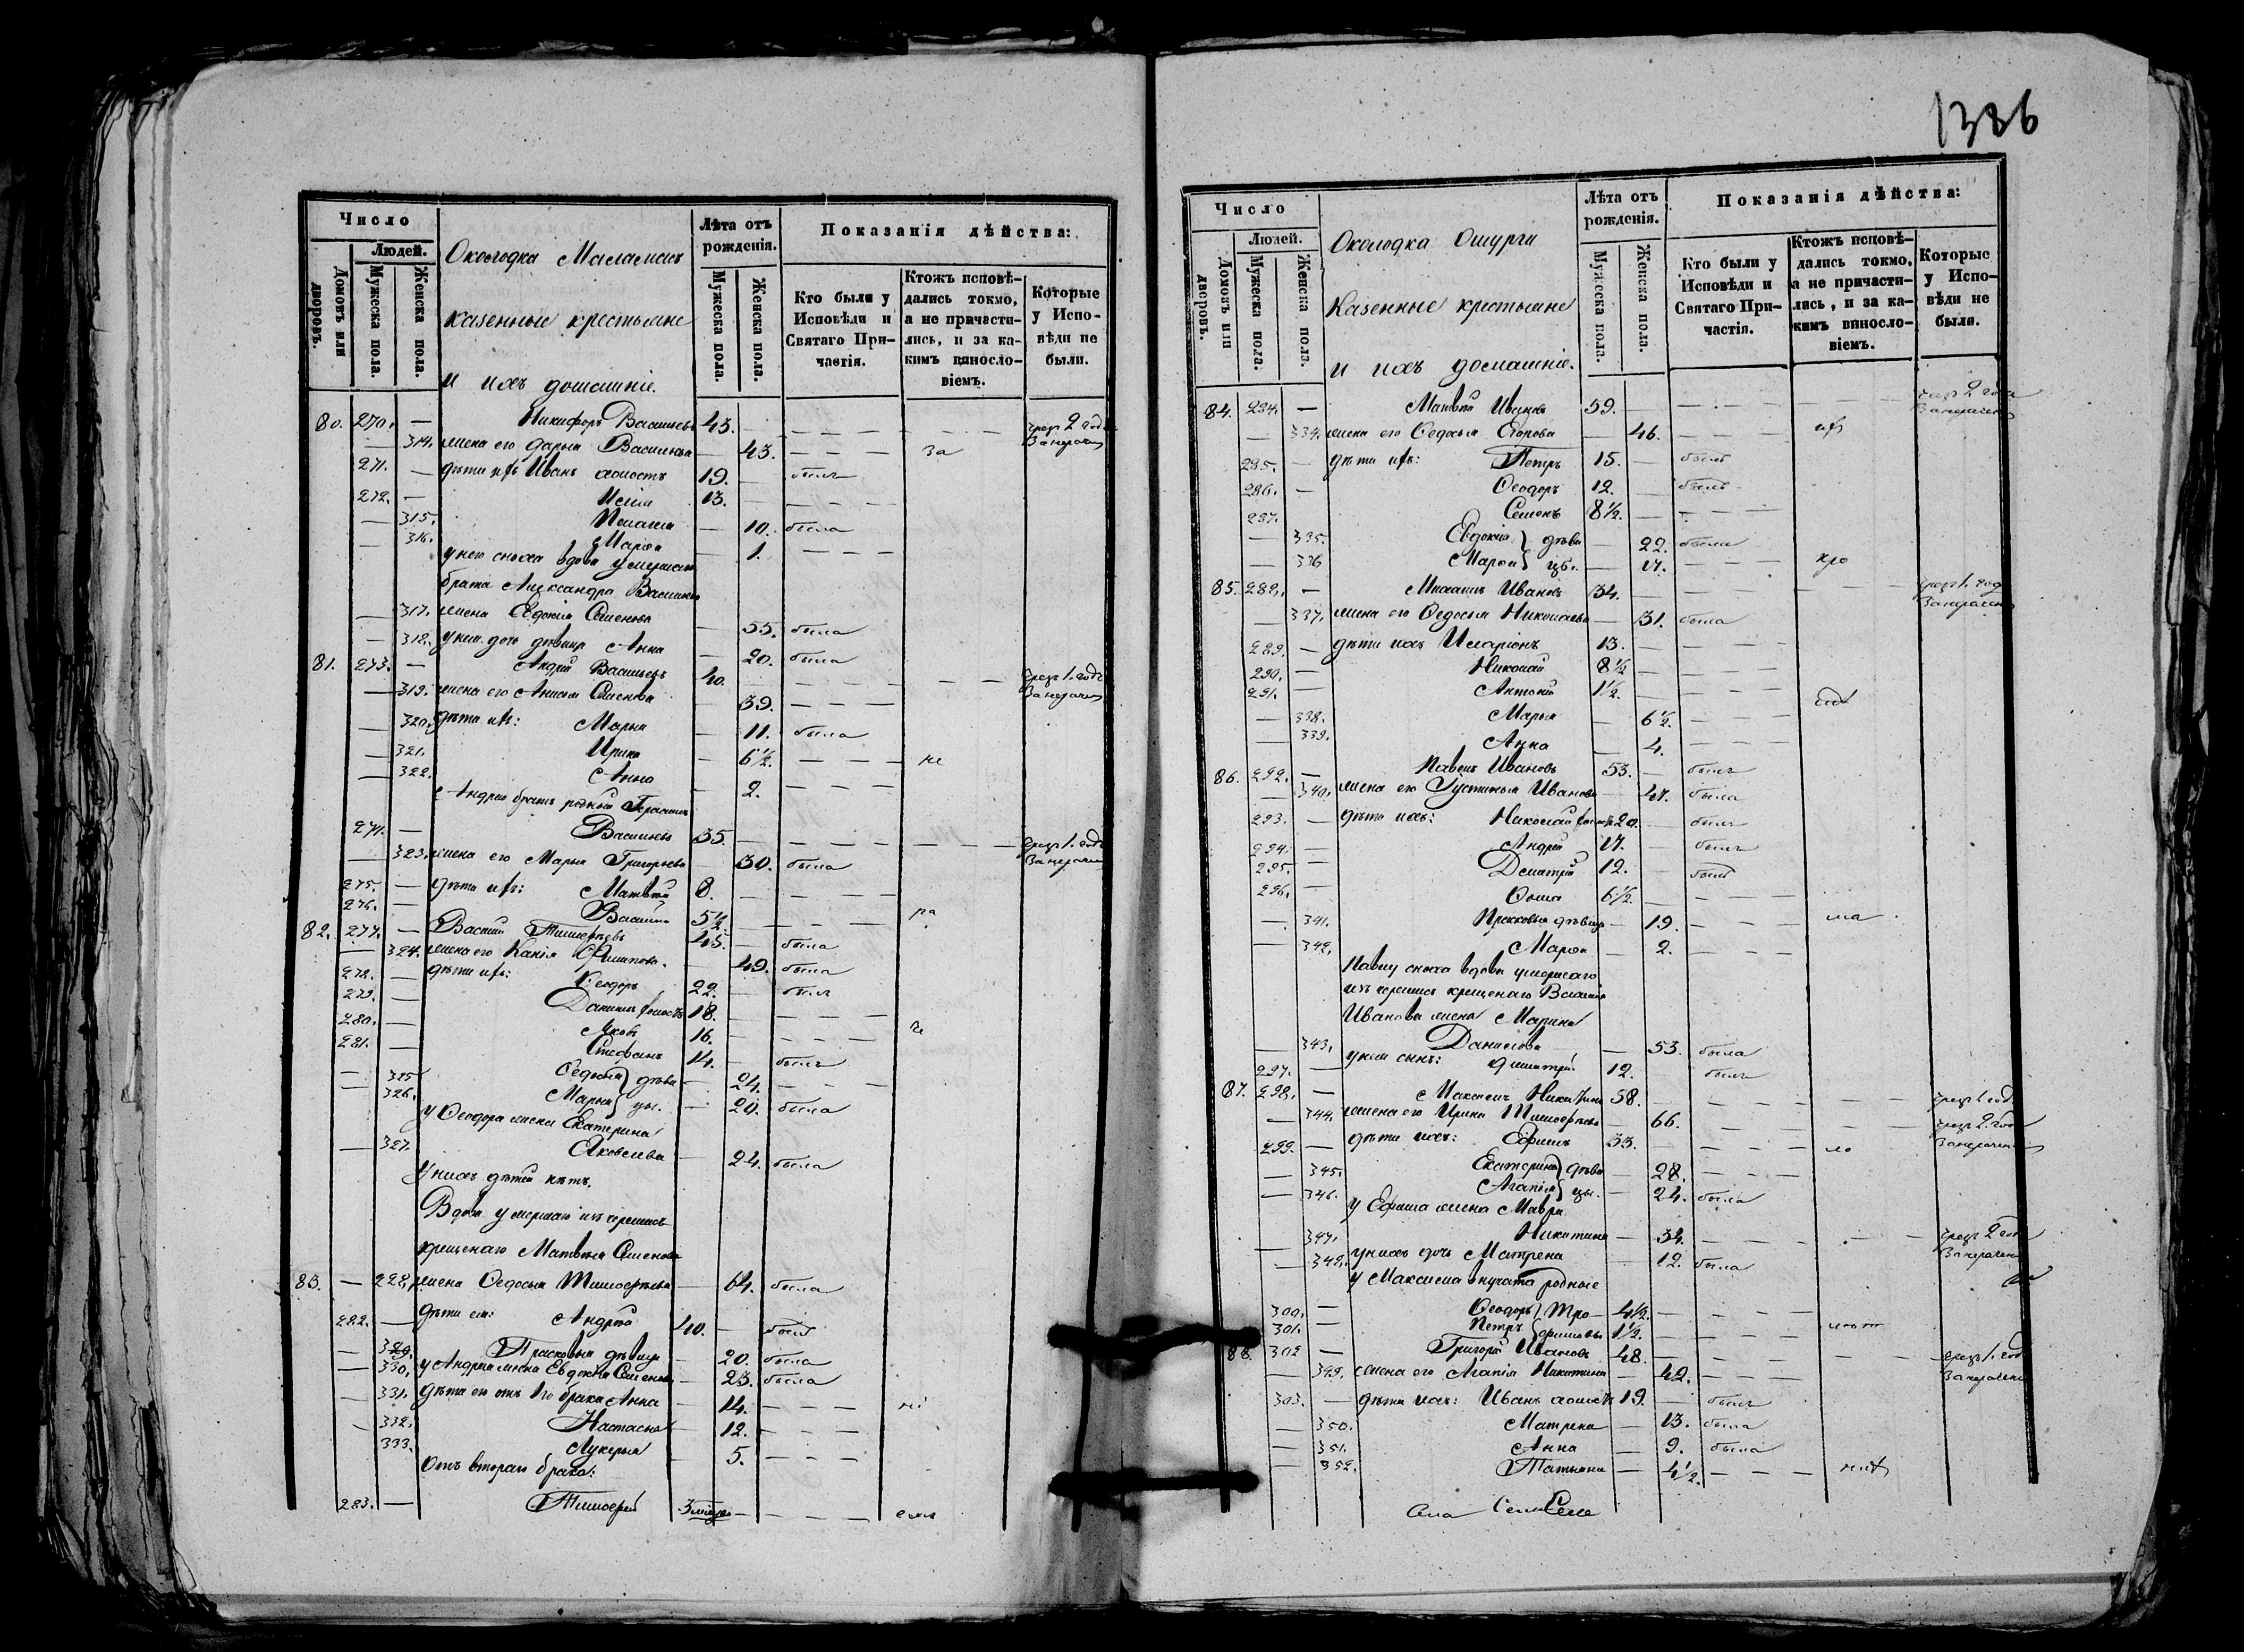 1386
Число
Людей.
Домовъ или дворовъ.
Мужеска пола.
Женска пола.
Околодка
казенные крестьяне
и ихъ домашніе.
Лѣта отъ рожденія.
Мужеска пола.
Женска пола.
Показанія дѣйства:
Кто были у Исповѣди и Святаго Причастія.
Ктожъ исповѣдались токмо, а не причастились, и за какимъ винословіемъ.
Которые у Исповѣди не были.
80. 270. — Никифоръ Васильевъ 43. — чрез 2 года
— 314. жена его Дарья Васильева — 43. — — — за
271. — дѣти ихъ Иванъ холостъ 19. — былъ
272. — 13. — — —
— 315. Пелагея — 10. была
— 316. Марѳа — 1. — — —
у него сноха вдова умершаго
брата Александра Васильева
— 317. жена Евдокія Семенова — 55. была
— 318. у нея дочь дѣвица Анна — 20. была
81. 273. — Андрей Васильевъ 40. — — — чрез 1. годъ
— 319. жена его Анисья Семенова — 39. — — —
— 320. дѣти ихъ: Марья — 11. была
— 321. Ирина — 6½. — — — не
— 322. Анна — 2. — — —
Андрея братъ родный Герасимъ
274. — Васильевъ 35. — — — чрез 1. годъ
— 323. жена его Марья Григорьева — 30. была
275. — дѣти ихъ: Матвей 8. — — —
276. — Василій 5½. — — — ра
82. 277. — Василій Тимоѳеевъ 45. — былъ
— 324. жена его Филипова. — 49. была
278. — дѣти ихъ: Ѳеодоръ 22. — былъ
279. — Данилъ холостъ 18. — — —
280. — Яковъ 16. — — —
281. — Стефанъ 14. — былъ
— 325 Ѳедосья } дѣви — 24. — — —
— 326. Марья } цы. — 20. была
у Ѳеодора жена Екатерина
— 327. Яковлева — 24. была
у нихъ дѣтей нѣтъ.
Вдова умершаго изъ черемисъ
крещенаго Матвея Семенова
83. — 328. жена Ѳедосья Тимоѳеева — 64. была
282. — дѣти ея: Андрей 40. — былъ
— 329. Прасковья дѣвица — 20. была
— 330. у Андрея жена Евдокія Семенова — 23. была
— 331. дѣти его отъ 1го брака Анна — 14. — — —
— 332. Настасья — 12. — — —
333. Лукерья — 5. — — —
Отъ втораго брака:
283. — Тимоѳей 3 — — —
Число
Людей.
Домовъ или дворовъ.
Мужеска пола.
Женска пола.
Околодка Ошурги
Казенные крестьяне
и ихъ домашніе.
Лѣта отъ рожденія.
Мужеска пола.
Женска пола.
Показанія дѣйства:
Кто были у Исповѣди и Святаго Причастія.
Ктожъ исповѣдались токмо, а не причастились, и за какимъ винословіемъ.
Которые у Исповѣди не были.
84. 284. — Матвей Ивановъ 59. — — — чрез 2 года
— 334. жена его Ѳедосья Егорова — 46. — — —
285. — дѣти ихъ: Петръ 15. — былъ
286. — Ѳеодоръ 12. — былъ
287. — Семенъ 8½. — — —
— 335. Евдокія } дѣви — 22. была
— 336 Марѳа } цы. — 17. — — —
85. 288. — Михаилъ Ивановъ 34. — — — чрез 1. годъ
— 337. жена его Ѳедосья Николаева — 31. была
289. — дѣти ихъ Иларіонъ 13. — — —
290. — Николай 8½ — — —
291. — Антоній 1½. — — —
— 338. Марья — 6½. — — —
— 339. Анна — 4. — — —
86. 292. — Павелъ Ивановъ 53. — былъ
— 340. жена его Густинья Иванова — 47. была
293. — дѣти ихъ: Николай холостъ 20. — былъ
294. — Андрей 17. — былъ
295. — Дмитрій 12. — былъ
296. — Ѳома 6½. — — —
— 341. Прасковья дѣвица — 19. — — — ма
— 342. Марѳа — 2. — — —
Павлу сноха вдова умершаго
изъ черемисъ крещенаго Василія
Иванова жена Марина
— 343. Данилова — 53. была
297. — у нея сынъ: Димитрій 12. былъ
87. 298. — Максимъ Никитинъ 58. — — — чрез 1 годъ
— 344. жена его Ирина Тимоѳеева — 66. — — — чрез 2 года
299. — дѣти ихъ: Ефимъ 33. — — — ло
— 345. Екатерина } дѣви — 28. — — —
— 346. Агапія } цы. — 24. была
у Ефима жена Мавра
— 347. Никитина — 34. — — — чрез 2 года
— 348. у нихъ дочь Матрена — 12. была
у Максима внучата родные
300. — Ѳеодоръ } Тро 4½. — — —
301. — Петръ } фимовы 1½. — — —
88. 302 — Григорій Ивановъ 48. — — — чрез 1. годъ
— 349. жена его Агапія Никитина — 42. — — —
303. — дѣти ихъ: Иванъ холостъ 19. — былъ
— 350. Матрена — 13. была
— 351. Анна — 9. была
— 352. Татьяна — 4½. — — —